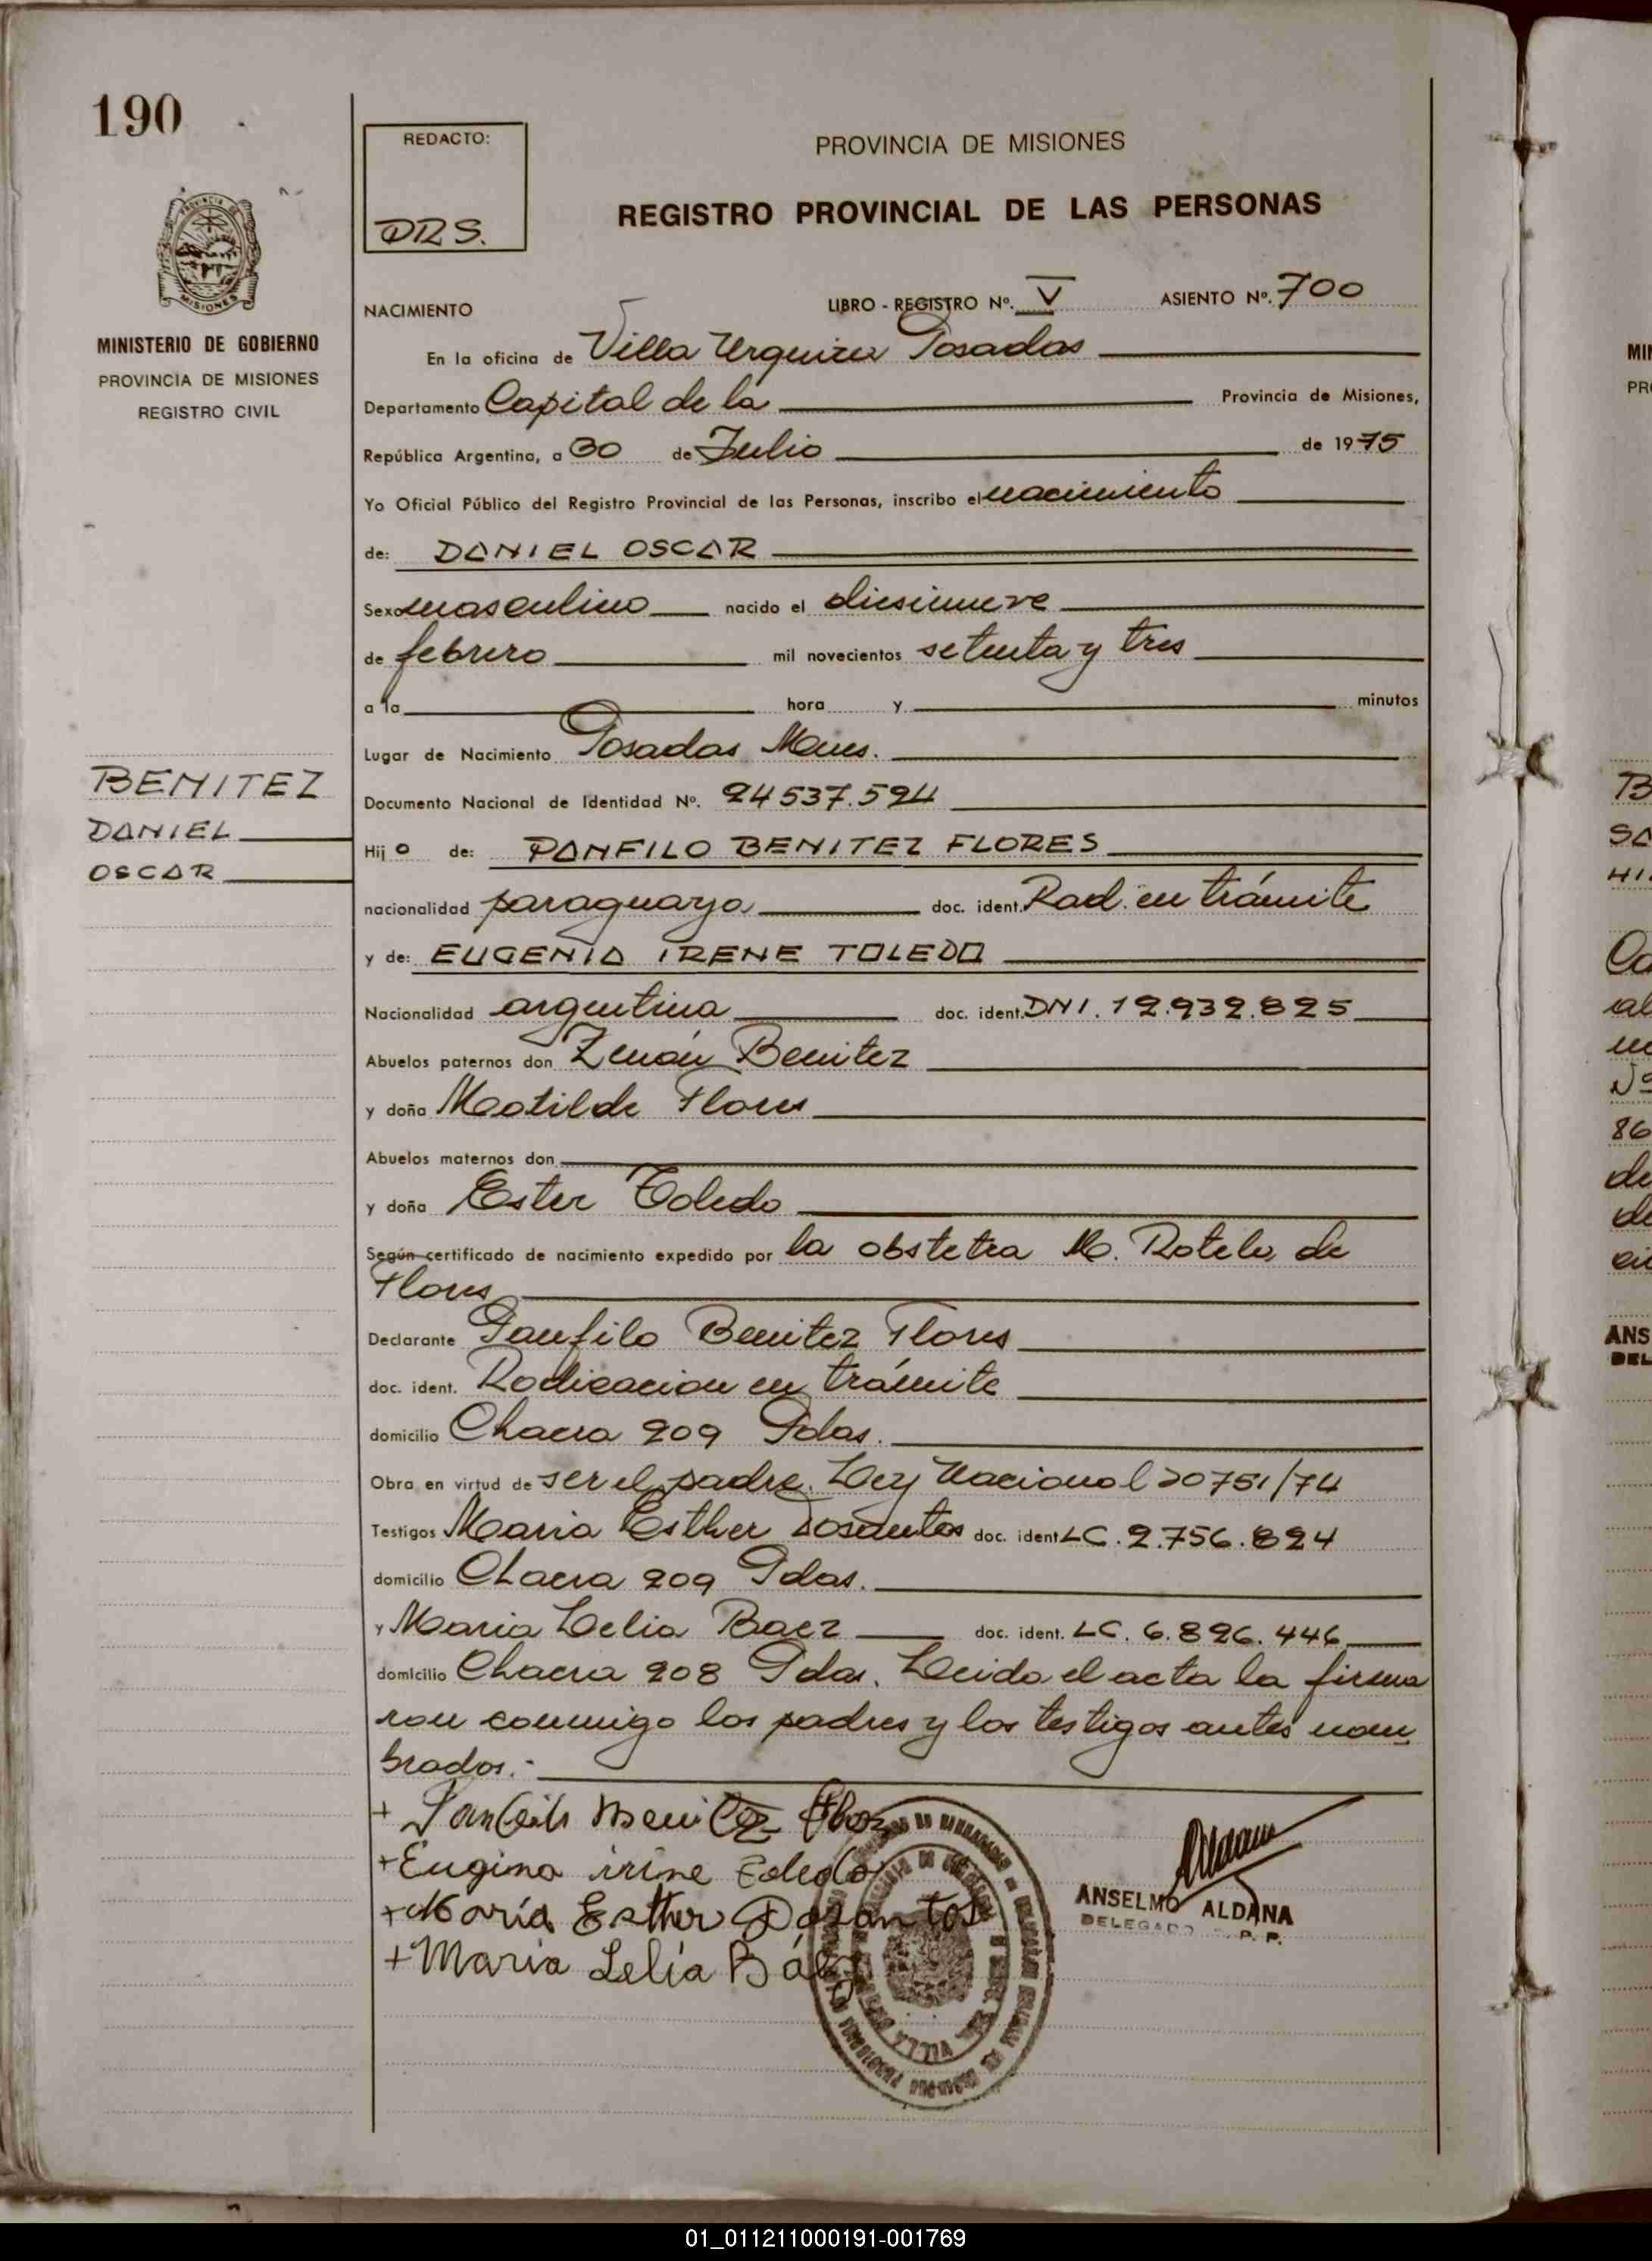 190
REDACTO:
DRS.
PROVINCIA DE MISIONES
REGISTRO PROVINCIAL DE LAS PERSONAS
MISIONES
MINISTERIO DE GOBIERNO
PROVINCIA DE MISIONES
REGISTRO CIVIL
NACIMIENTO LIBRO - REGISTRO Nº. V ASIENTO Nº. 700
En la oficina de Villa Urquiza Posadas
Departamento Capital de la Provincia de Misiones,
República Argentina, a 30 de Julio de 1975
Yo Oficial Público del Registro Provincial de las Personas, inscribo el nacimiento
de: DANIEL OSCAR
Sexo masculino nacido el diesinueve
de febrero mil novecientos setenta y tres
a la hora y minutos
Lugar de Nacimiento Posadas Mnes.
BENITEZ
DANIEL
OSCAR
Documento Nacional de Identidad Nº. 24537.524
Hij o de: PANFILO BENITEZ FLORES
nacionalidad paraguaya doc. ident. Rad. en trámite
y de: EUGENIA IRENE TOLEDO
Nacionalidad argentina doc. ident. DNI. 12.932.825
Abuelos paternos don Zenón Benitez
y doña Matilde Flores
Abuelos maternos don
y doña Ester Toledo
Según certificado de nacimiento expedido por la obstetra M. Rotela de
Flores
Declarante Panfilo Benitez Flores
doc. ident. Radicacion en trámite
domicilio Chacra 209 Pdas.
Obra en virtud de ser el padre. Ley Nacional 20751/74
Testigos Maria Esther Dosantos doc. ident LC. 2.756.824
domicilio Chacra 209 Pdas.
y Maria Lelia Baez doc. ident. LC. 6.826.446
domicilio Chacra 208 Pdas. Leida el acta la firma
ron conmigo los padres y los testigos antes nom
brados.-
+ Benitez
+ Eugina irine Toledo
+ María Esther Dosantos
+ Maria Lelia Báez
ANSELMO ALDANA
DELEGADO R. P. P.
01_011211000191-001769